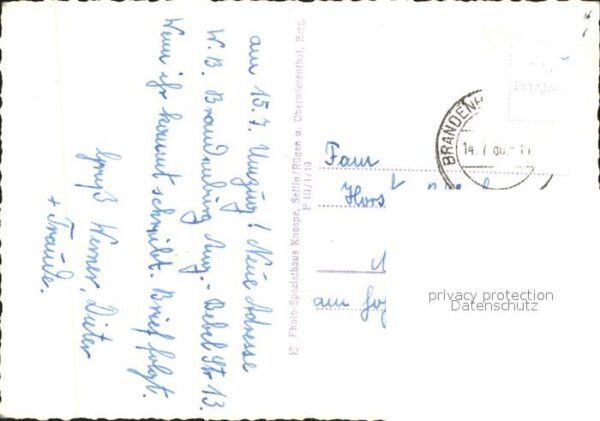 am 15.7. Umzug! Neue Adresse
W.B. Brandenburg Aug.-Bebel Str 13.
Wenn ihr kommt schreibt. Brief folgt.
Gruß Werner, Dieter
+ Traude.
Photo-Spezialhaus Knospe, Sellin/Rügen u. Oberwiesenthal, Erzg.
F III/1/10
BRANDENB
14. 7
Fam
Horst
am
privacy protection
Datenschutz